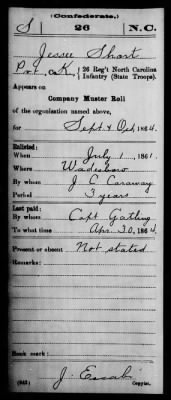 (Confederate.)
S 26 N.C.
Jesse Short
Pvt, Co. K, 26 Reg't North Carolina
Infantry (State Troops).
Appears on
Company Muster Roll
of the organization named above,
for Sept & Oct, 1864.
Enlisted:
When July 1, 1861.
Where Wadesboro
By whom J C Caraway
Period 3 years
Last paid:
By whom Capt Gatling
To what time Apr 30, 1864.
Present or absent Not stated
Remarks:
Book mark:
(642) J. Copyist.